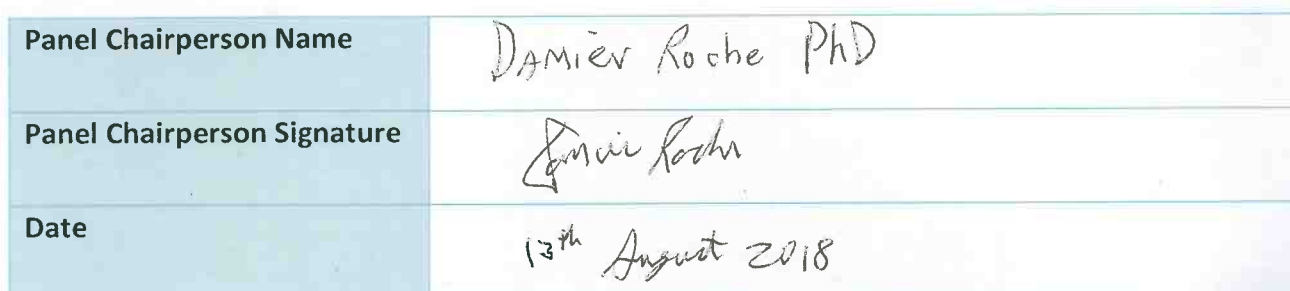 Panel Chairperson Name Damien Roche PhD
Panel Chairperson Signature Damien Roche
Date 13th August 2018